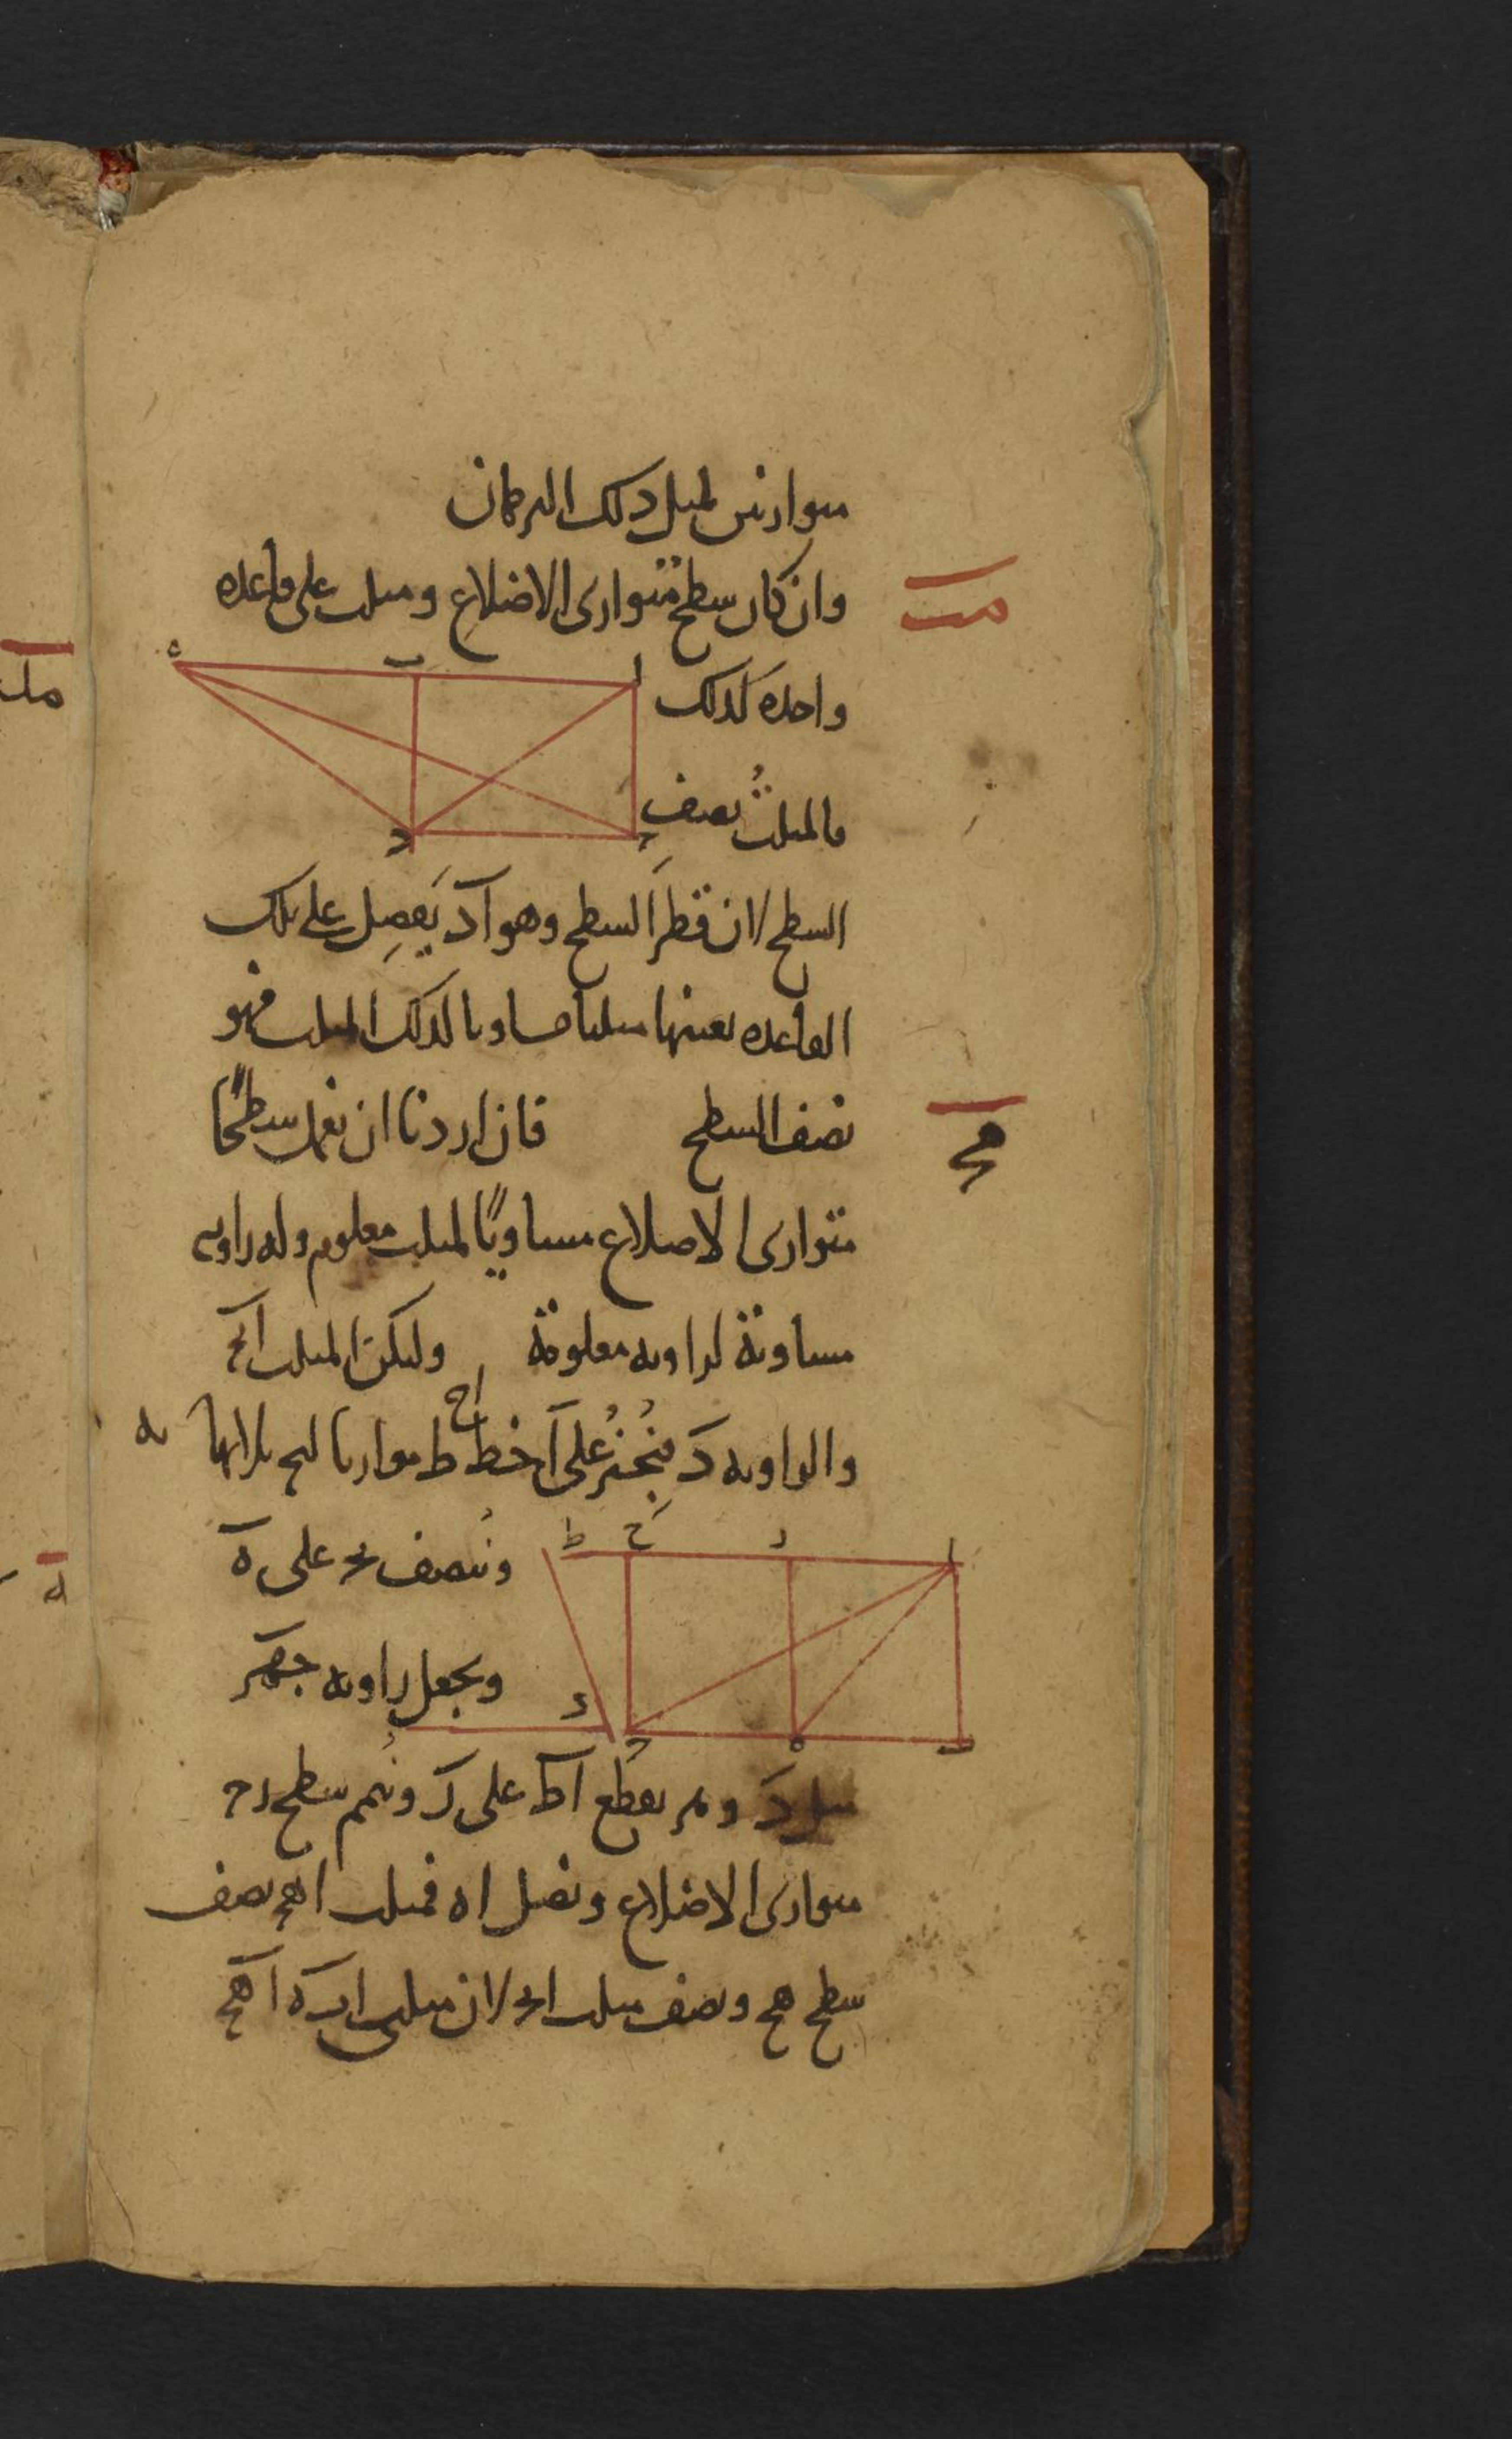 متوازيين لمثل ذلك البرهان
مب
وان كان سطح متوازى الاضلاع ومثلث على قاعدة
واحدة كذلك
فالمثلث نصف
ه ب ا
د ج
السطح لان قطر السطح وهو اد يفصل على تلك
القاعدة بعينها مثلثا مساويا لذلك المثلث فهو
مج
نصف السطح فان اردنا ان نعمل سطحًا
متوازى الاضلاع مساويًا لمثلث معلوم وله زاوية
مساوية لزاوية معلومة وليكن المثلث ابج
والزاوية د فنُجيزُ على ا خط اح ط موازيا لبج بلا نهاية
وننصف بج على ه
ونجعل زاوية جهز
ط ح ز ا
د ج ه ب
مثل د و هز يقطع اط على ز ونُتمم سطح زج
متوازى الاضلاع ونصل اه فمثلث اهج نصف
سطح هح ونصف مثلث ابج لان مثلثى ابه اهج